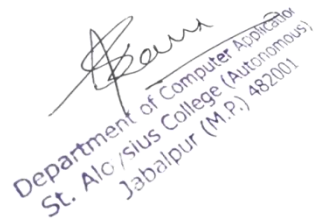 Department of Computer Application
St. Alo sius College (Autonomous)
Jabalpur (M.P.) 482001